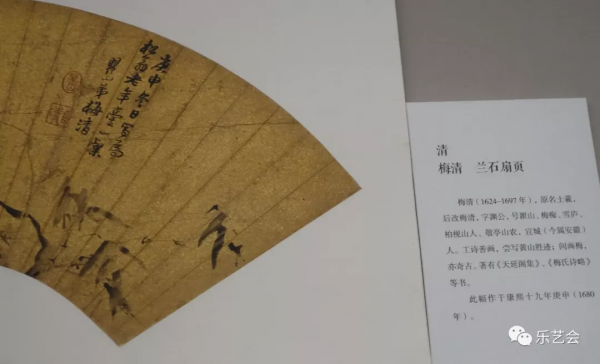 庚申冬日寫为
松翁老年臺
瞿山弟梅清
清
梅清 兰石扇页
梅清（1624—1697年），原名士羲，
后改梅清，字渊公，号瞿山、梅痴、雪庐、
柏枧山人、敬亭山农，宣城（今属安徽）
人。工诗善画，尝写黄山胜迹；间画梅，
亦奇古。著有《天延阁集》、《梅氏诗略》
等书。
此幅作于康熙十九年庚申（1680
年）。
乐艺会